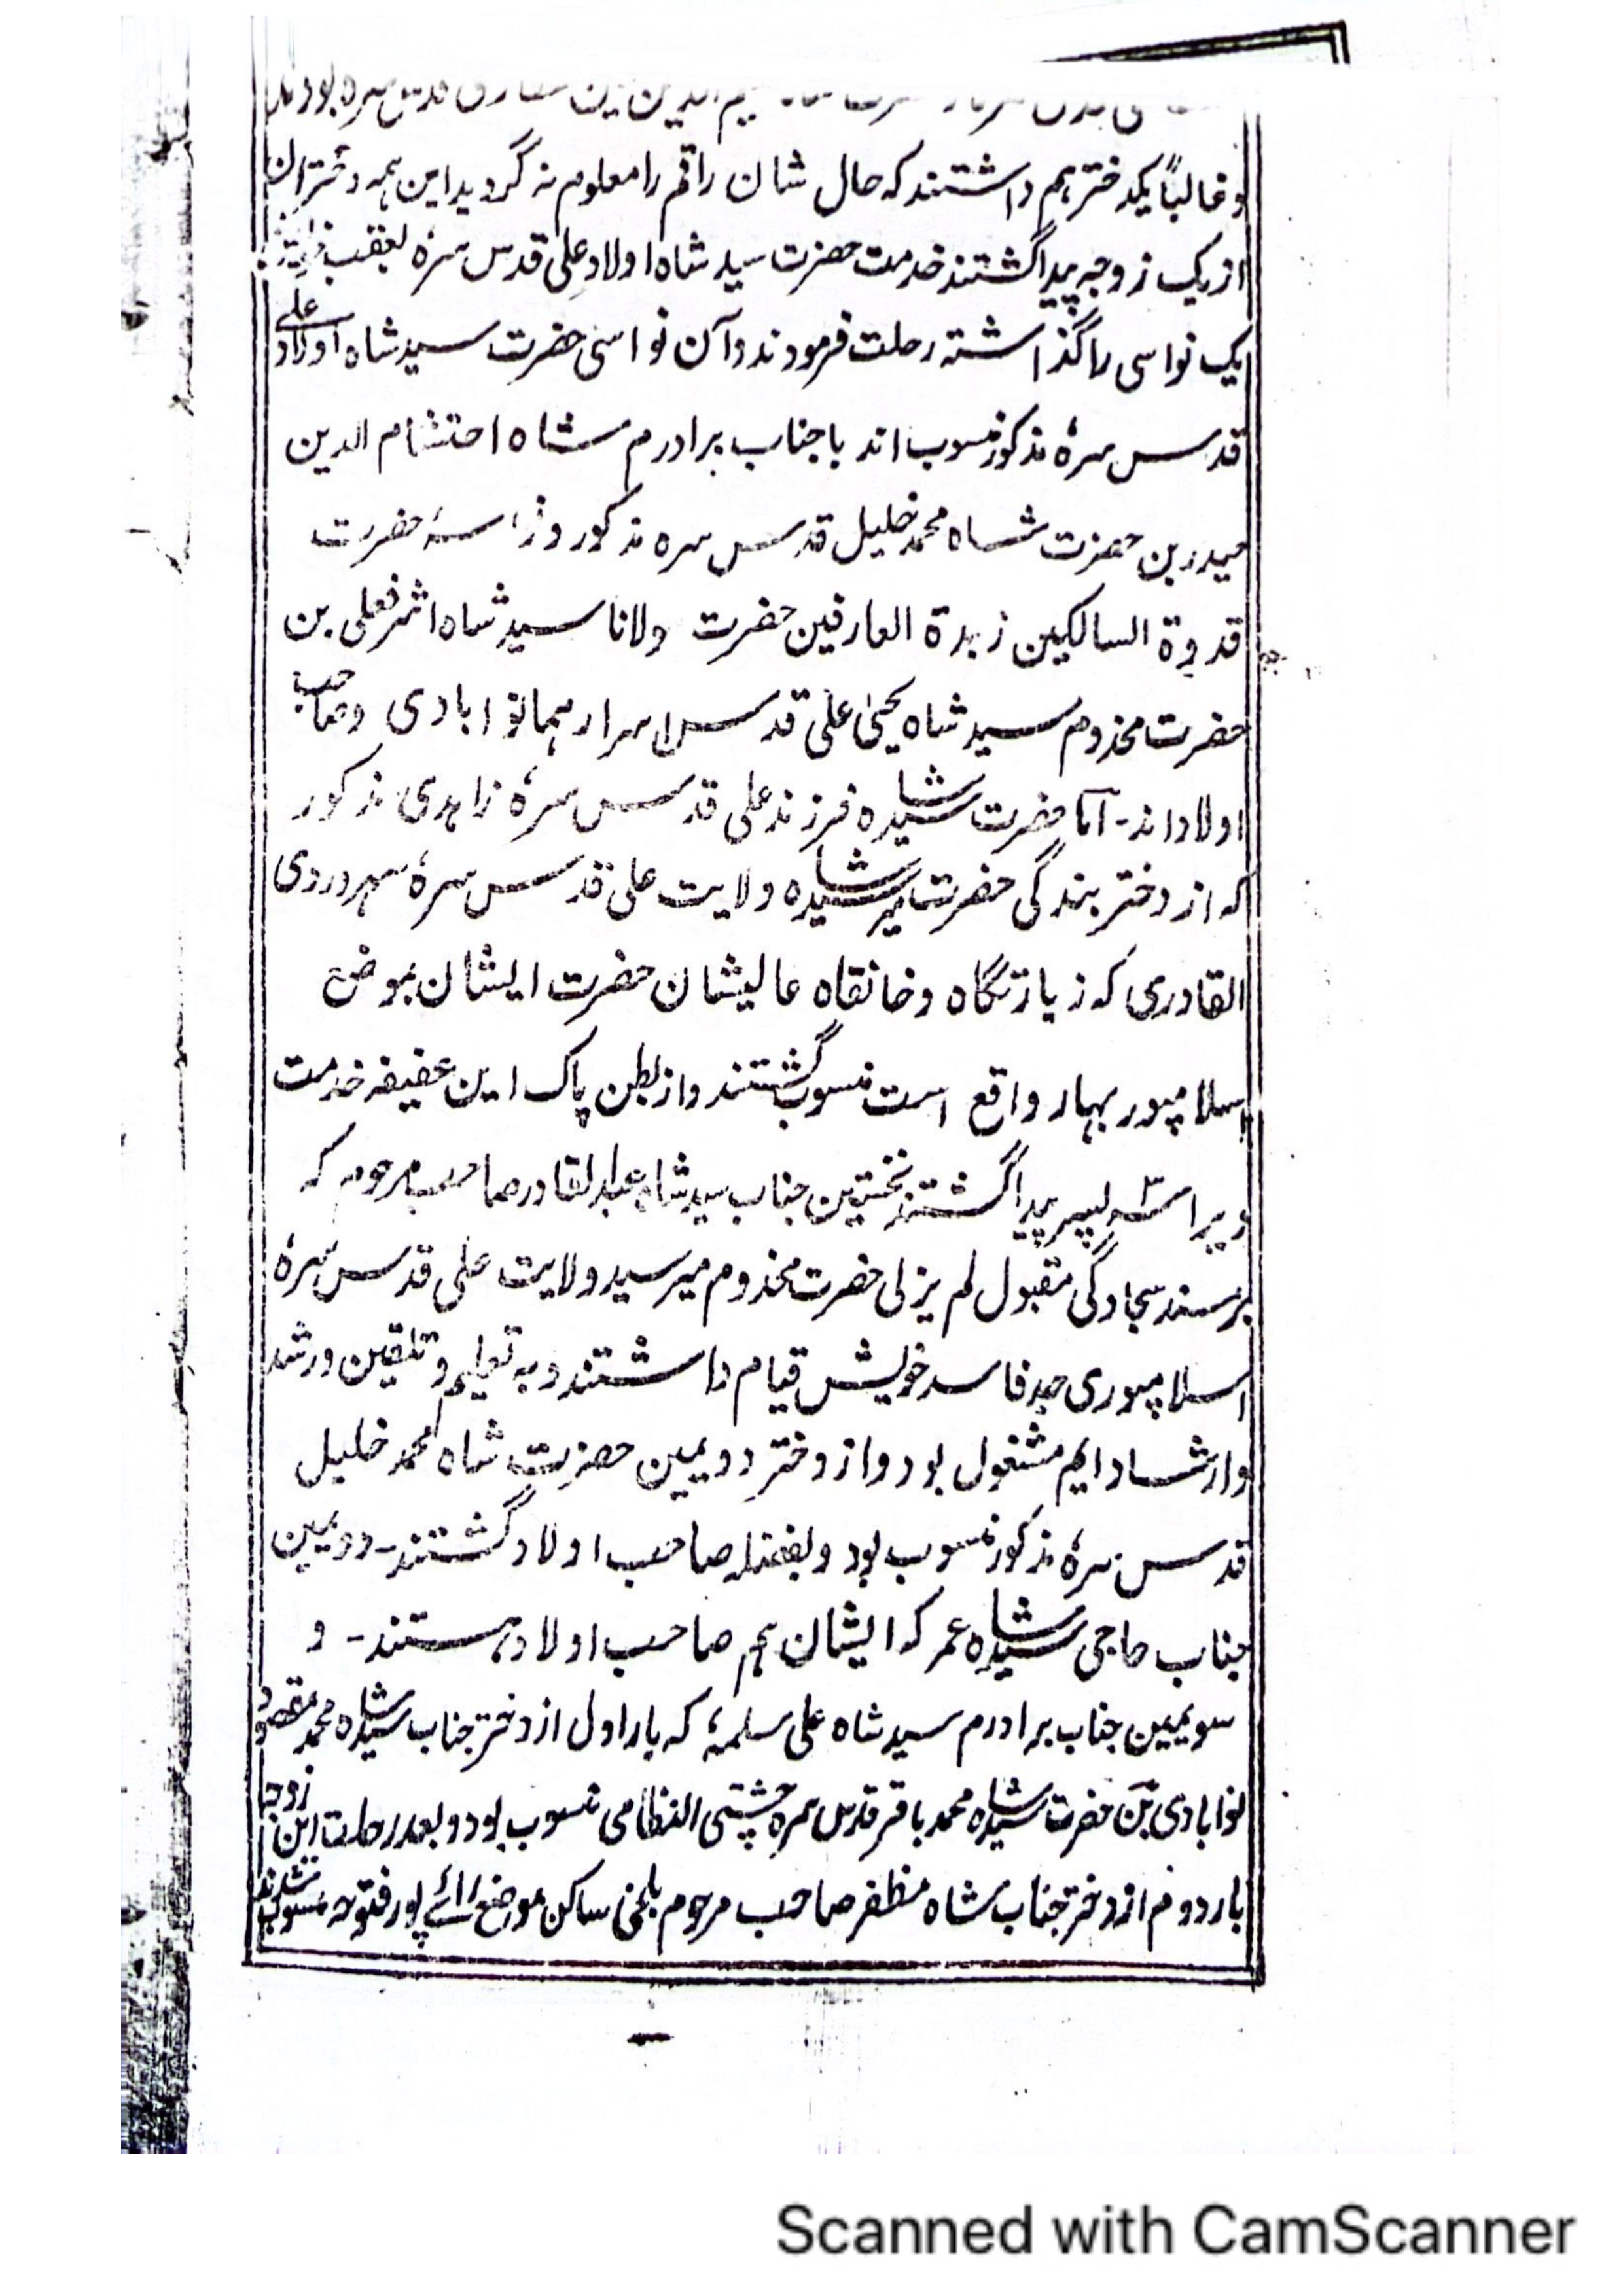 قدس سره بودند
و غالباً یکدختر هم داشتند که حال شان راقم را معلوم نہ گردید این ہمہ دختران
از یک زوجہ پیدا گشتند خدمت حضرت سید شاہ اولاد علی قدس سرہٗ بعقب
یک نواسی را گذاشتہ رحلت فرمودند و آن نواسی حضرت سید شاہ اولاد علی
قدس سرہٗ مذکور منسوب اند با جناب برادرم شاہ احتشام الدین
حیدر بن حضرت شاہ محمد خلیل قدس سرہ مذکور و نواسۂ حضرت
قدوۃ السالکین زبدۃ العارفین حضرت مولانا سید شاہ اشرف علی بن
حضرت مخدوم سید شاہ یحییٰ علی قدس اسرارہما نوابادی و صاحب
اولاد اند۔ اما حضرت سید شاہ فرزند علی قدس سرہٗ زاہدی مذکور
کہ از دختر بندگی حضرت میر سید شاہ ولایت علی قدس سرہٗ سہروردی
القادری کہ زیارتگاہ و خانقاہ عالیشان حضرت ایشان بموضع
اسلامپور بہار واقع است منسوب گشتند و از بطن پاک این عفیفہ خدمت
ویرا سہ پسر پیدا گشتند نخستین جناب سید شاہ عبدالقادر صاحب مرحوم کہ
بر مسند سجادگی مقبول لم یزلی حضرت مخدوم میر سید ولایت علی قدس سرہٗ
اسلامپوری جد فاسد خویش قیام داشتند و بہ تعلیم و تلقین و رشد
و ارشاد دایم مشغول بود و از دختر دویمین حضرت شاہ محمد خلیل
قدس سرہٗ مذکور منسوب بود و بفضلہ صاحب اولاد گشتند۔ دویمین
جناب حاجی سید شاہ عمر کہ ایشان ہم صاحب اولاد ہستند۔ و
سویمین جناب برادرم سید شاہ علی سلمہٗ کہ بار اول از دختر جناب سید شاہ محمد مقصود
نوابادی بن حضرت سید شاہ محمد باقر قدس سرہ چشتی النظامی منسوب بود و بعد رحلت این زوجہ
بار دوم از دختر جناب شاہ مظفر صاحب مرحوم بلخی ساکن موضع رائے پور فتوحہ منسوب شدند
Scanned with CamScanner